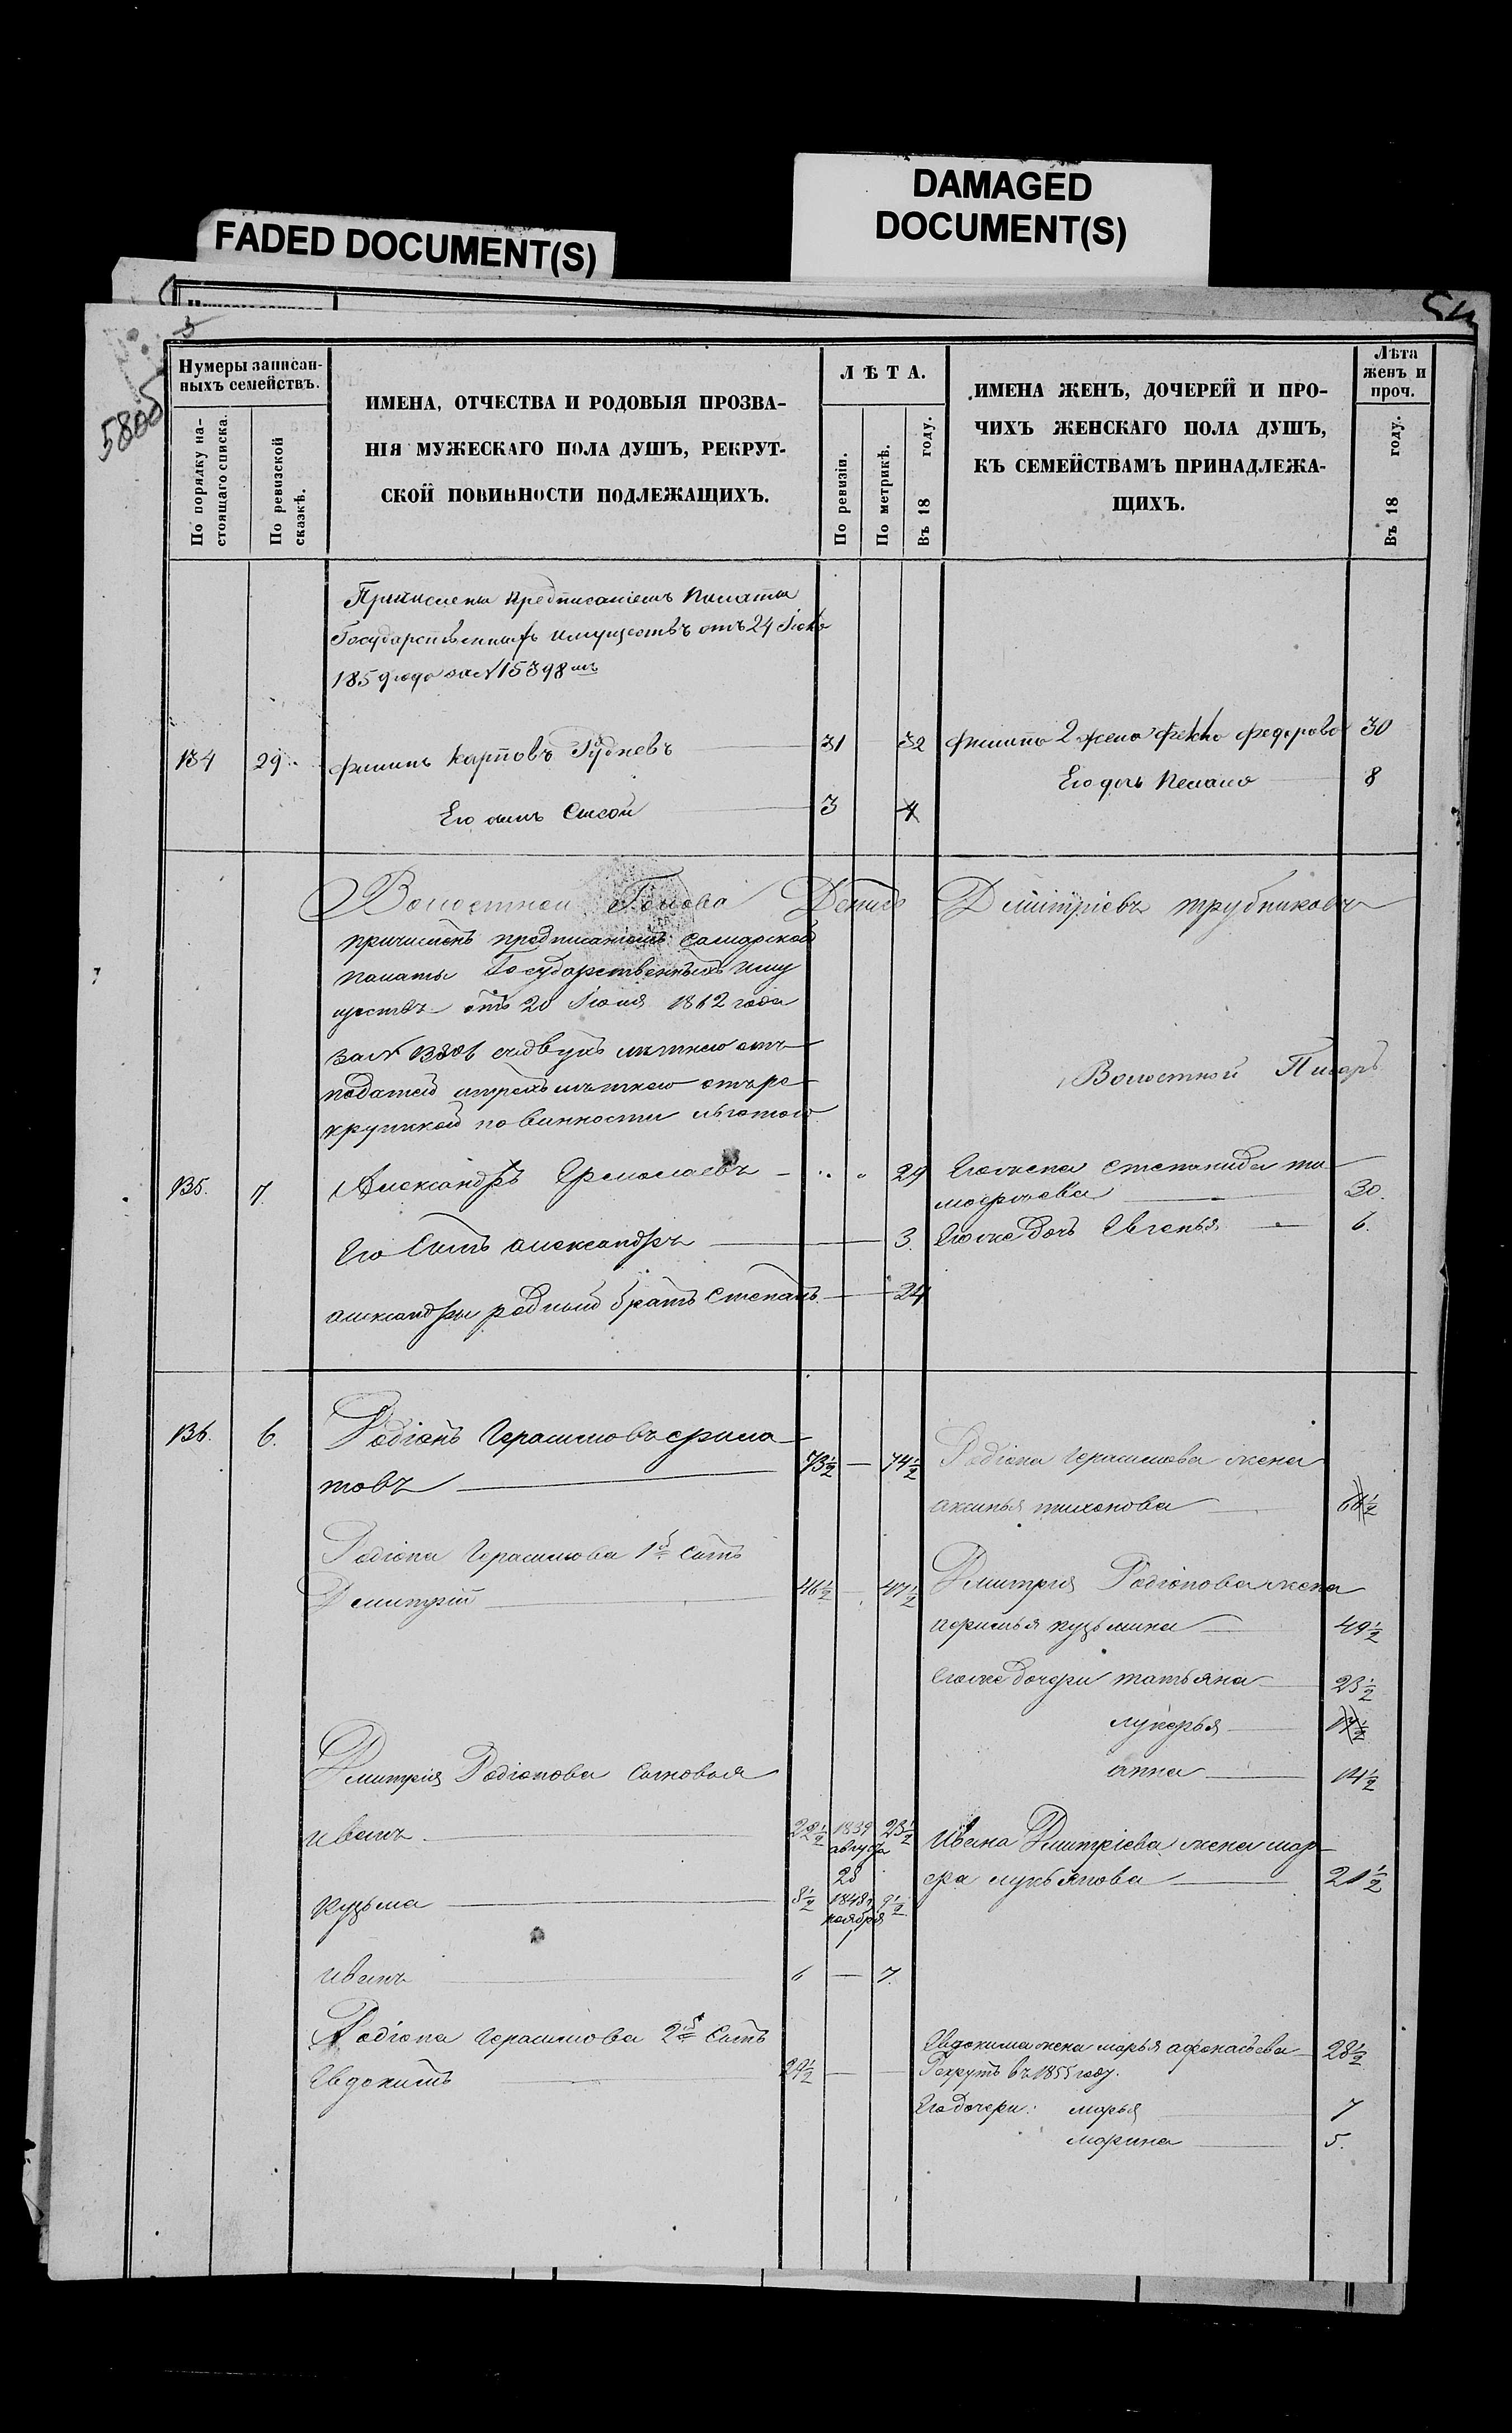 FADED DOCUMENT(S)
DAMAGED
DOCUMENT(S)
Нумеры записан-
ныхъ семействъ.
По порядку на-
стоящаго списка.
По ревизской
сказкѣ.
ИМЕНА, ОТЧЕСТВА И РОДОВЫЯ ПРОЗВА-
НІЯ МУЖЕСКАГО ПОЛА ДУШЪ, РЕКРУТ-
СКОЙ ПОВИННОСТИ ПОДЛЕЖАЩИХЪ.
ЛѢТА.
По ревизіи.
По метрикѣ.
Въ 18 году.
ИМЕНА ЖЕНЪ, ДОЧЕРЕЙ И ПРО-
ЧИХЪ ЖЕНСКАГО ПОЛА ДУШЪ,
КЪ СЕМЕЙСТВАМЪ ПРИНАДЛЕЖА-
ЩИХЪ.
Лѣта
женъ и
проч.
Въ 18 году.
Причислены предписаніемъ Палаты
Государственныхъ имуществъ отъ 24
1859 года за № 15398
134 29 Филипъ Карповъ 31 32 Филипа 2 жена Фекла Федорова 30
Его дочь 8
Его сынъ Сысой 3 4
Волостной Голова Денис Дмитріевъ Трубниковъ
причисленъ предписаніемъ Самарской
палаты Государственныхъ иму
ществъ отъ 20 Іюля 1862 года
за №
податей
крутской повинности льготою
Волостной Писарь
135. 7. Александръ Ермолаевъ 29 Его жена Степанида ти
мофѣева 30.
Его Сынъ александръ 3. Его же дочь Евгенья 6.
александры родный братъ Степанъ 24
136. 6. Родіонъ Герасимовъ фила
товъ 73½ 74½ Родіона Герасимова жена
аксинья тихонова 66½
Родіона Герасимова 1й Сынъ
Дмитрій 46½ 47½ Дмитрія Родіонова жена
афимья кузьмина 49½
Его же дочери татьяна 23½
лукерья
анна 14½
Дмитрія Родіонова Сыновья
иванъ 22½ 1839 августа 28 23½ Ивана Дмитріева жена мар
фа лукьянова 21½
кузьма 8½ 1848 ноября 9½
иванъ 6 7.
Родіона Герасимова 2й Сынъ
Евдокимъ 24½
Евдокима жена марья афонасьева 28½
Рекрутъ въ 1855 году.
Его дочери: марья 7
марина 5.